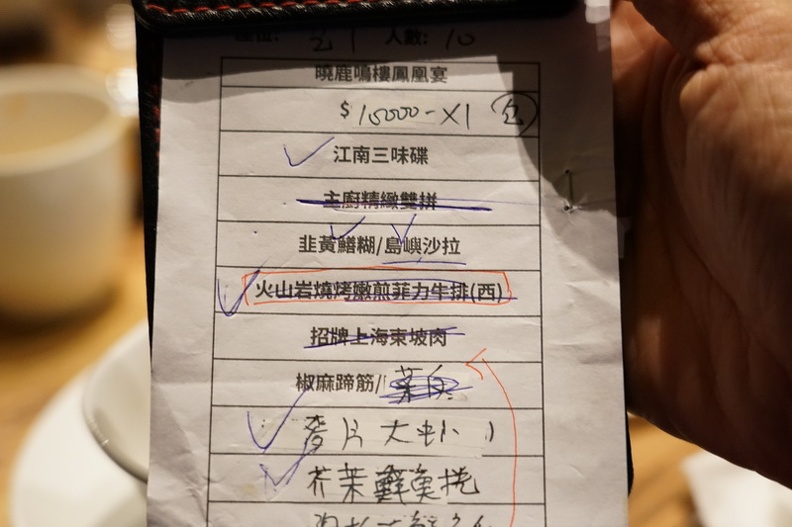 座位: 包1 人數: 10
曉鹿鳴樓鳳凰宴
$15000-X1 包
江南三味碟
主廚精緻雙拼
韭黃鱔糊/島嶼沙拉
火山岩燒烤嫩煎菲力牛排(西)
招牌上海東坡肉
椒麻蹄筋/
麥片大虾
芥茉鮮魚捲